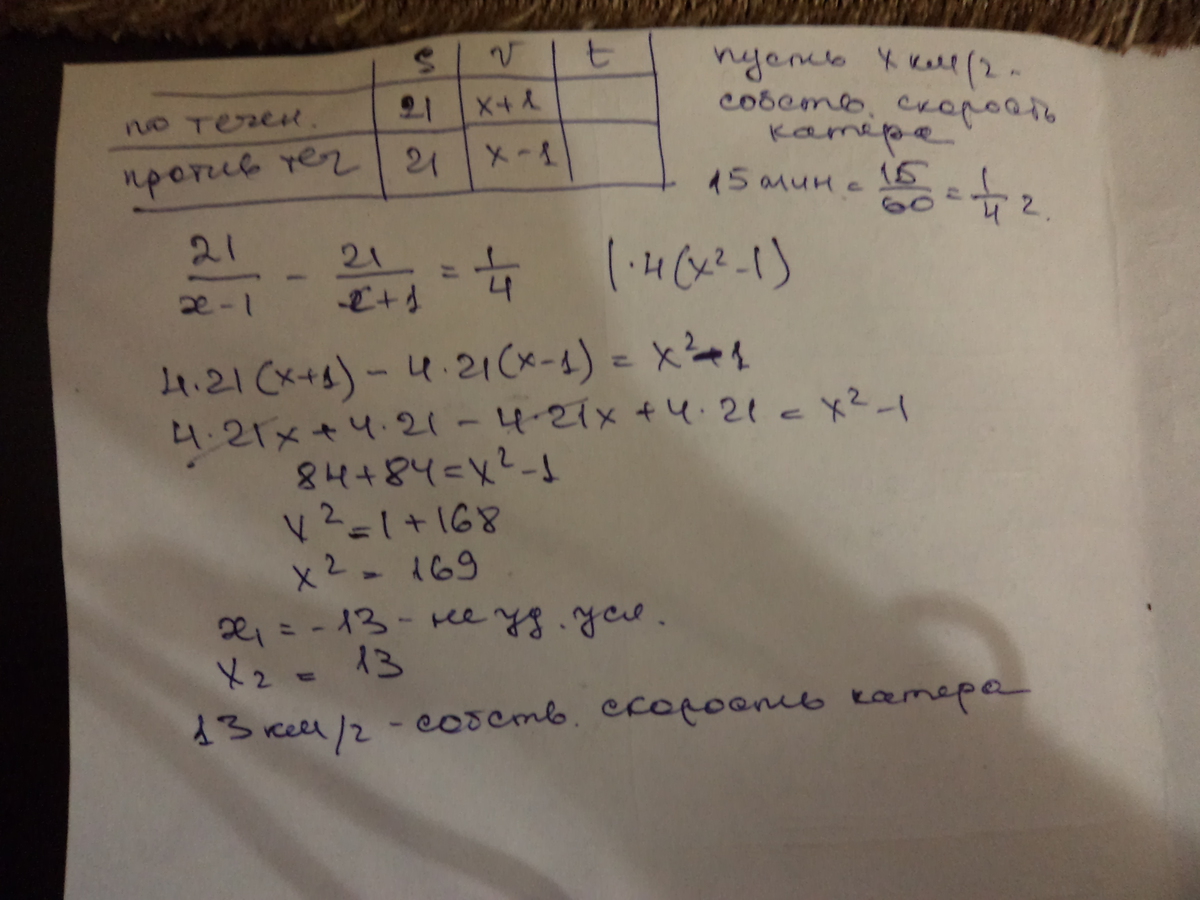 S V t
по течен. 21 x+1
против теч 21 x-1
пусть x км/г -
собств. скорость
катера
15 мин. = 15/60 = 1/4 г.
21/(x-1) - 21/(x+1) = 1/4 |·4(x²-1)
4·21(x+1) - 4·21(x-1) = x²-1
4·21x + 4·21 - 4·21x + 4·21 = x²-1
84+84=x²-1
x²=1+168
x² = 169
x₁ = -13 - не уд. усл.
x₂ = 13
13 км/г - собств. скорость катера